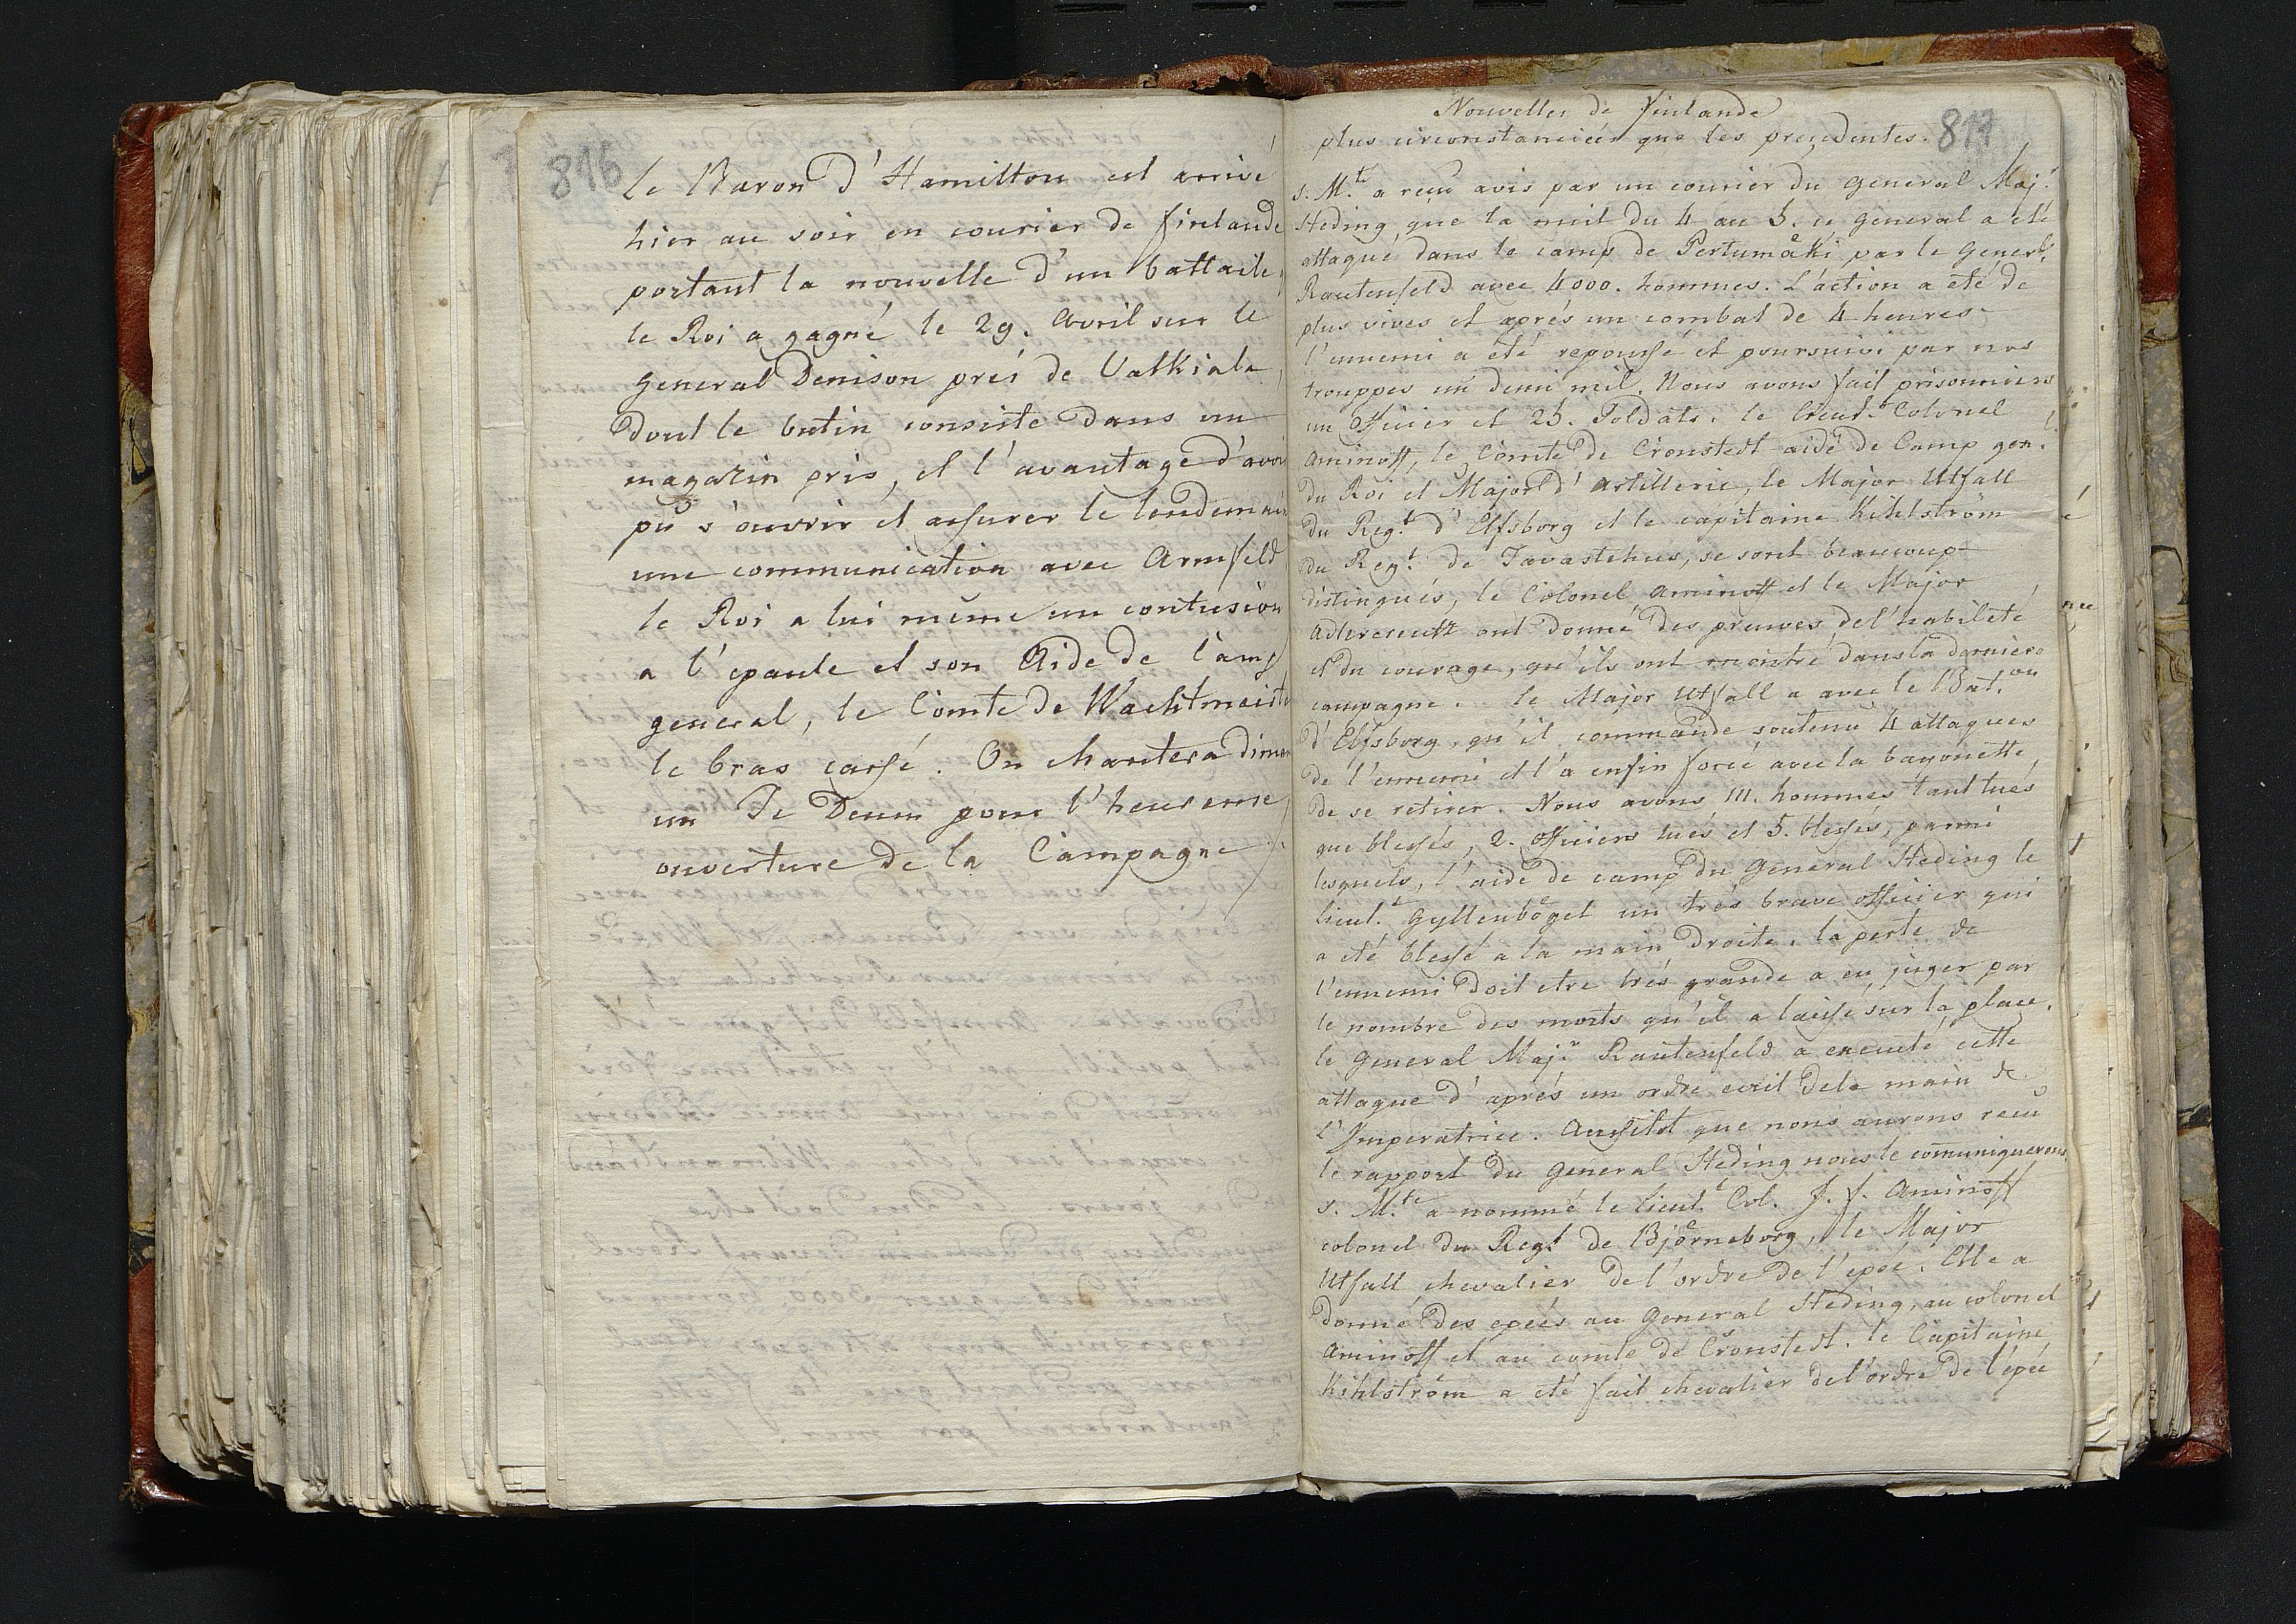 816
le Baron d'Hamilton est arrivé
hier au soir en courier de finlande
portant la nouvelle d'un battaile,
le Roi a gagné le 29. Avril sur le
general Denison prés de Valkiala,
dont le butin consiste dans un
magazin pris, et l'avantage d'avoi
pû s'ouvrir et assurer le lendemain
une communication avec Armfeld
le Roi a lui même un contusion
a l'epaule et son Aide de Camp
general, le Comte de Wachtmeiste
le bras cassé. On chantera diman
un Te Deum pour l'heureuse
ouverture de la Campagne
Nouvelles de finlande
plus circonstanciées que les precedentes.
817
S. M.té a reçu avis par un courier du general Maj.r
Heding, que la nuit du 4 au 5. ce general a eté
attaqué dans le camp de Pertumäki par le general
Rautenfeld avec 4000. hommes. L'action a eté de
plus vives et aprés un combat de 4 heures
l'ennemi a été repoussé et poursuivi par nos
trouppes un demi mil. Nous avons fait prisonniers
un Officier et 25. Soldats. le lieut.t Colonel
Aminoff, le Comte de Cronstedt aide de Camp gen.l
du Roi et Major d'Artillerie, le Major Utfall
du Reg.t d'Elfsborg et le capitaine Kihlström
du Reg.t de Tavastehus, se sont beaucoup
distingués, le Colonel Aminoff et le Major
Adlercreutz ont donné des preuves de l'habileté
et du courage, qu'ils ont montré dans la derniere
campagne. le Major Utfall a avec le Bat.on
d'Elfsborg, qu'il commande soutenu 4 attaques
de l'ennemi et l'a enfin forcé avec la bayonette
de se retirer. Nous avons 111. hommes tant tués
que blessés, 2. officiers tués et 5. blessés, parmi
lesquels, l'aide de camp du General Heding le
lieut.t Gyllenbögel un trés brave officier qui
a eté blessé a la main droite. la perte de
l'ennemi doit etre trés grande a en juger par
le nombre des morts qu'il a laissé sur la place.
le General Maj.r Rautenfeld a executé cette
attaque d'aprés un ordre ecrit de la main de
l'Imperatrice. Aussitot que nous aurons reçu
le rapport du General Heding nous le comuniquerons.
S. M.té a nommé le lieut.t Col. J. f. Aminoff
colonel du Reg.t de Björneborg, le Major
Utfall chevalier de l'ordre de l'epée. Elle a
donné des epées au General Heding, au colonel
Aminoff et au comte de Cronstedt. le Capitaine
Kihlström a eté fait chevalier de l'ordre de l'épée